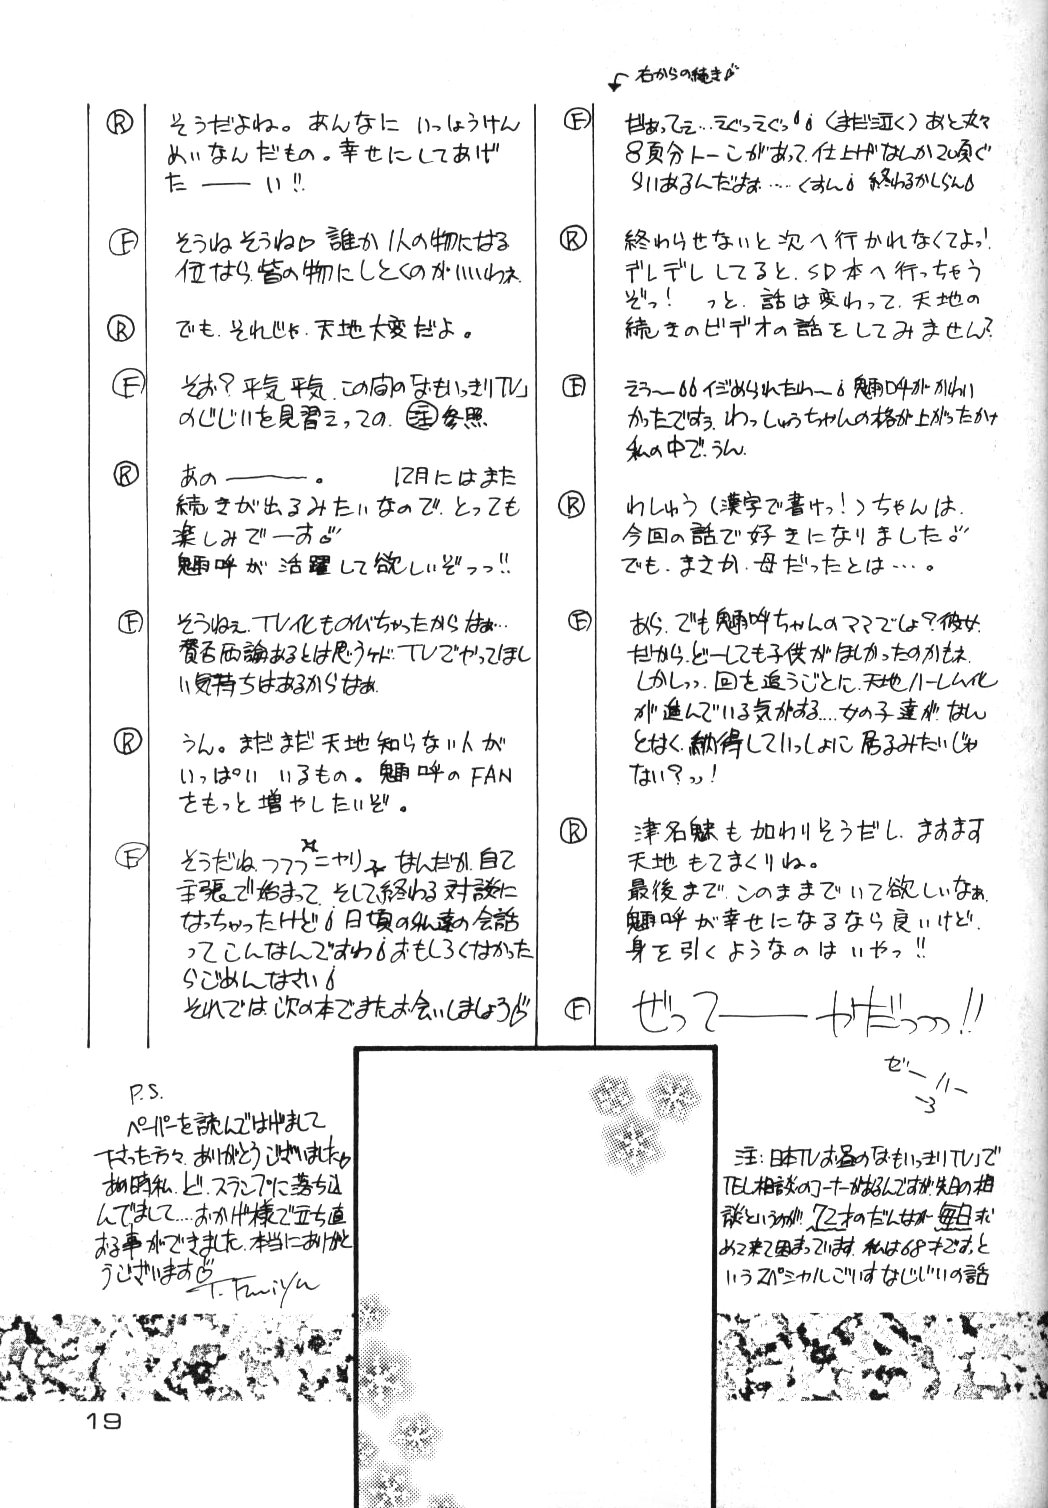 右からの続き♪
F
だぁってぇ…えぐっえぐっ（まだ泣く）あと丸々
8頁分トーンがあって、仕上げなんか20頁ぐ
らいあるんだなぁ……くすん 終わるかしらん
R
終わらせないと次へ行かれなくてよっ!
デレデレしてると、SD本へ行っちゃう
ぞっ! っと、話は変わって、天地の
続きのビデオの話をしてみません?
F
えう〜イジめられたわ〜 魎呼がかわい
かったですぅ、わっしゅうちゃんの格が上がったかナ
私の中で、うん、
R
わしゅう（漢字で書けっ!）ちゃんは、
今回の話で好きになりました♪
でも、まさか、母だったとは…。
F
あら、でも魎呼ちゃんのママでしょ?彼女、
だから、どーしても子供がほしかったのかもネ
しかしっっ、回を追うごとに、天地ハーレム化
が進んでいる気がする….女の子達が、なん
となく、納得していっしょに居るみたいじゃ
ない?っっ!
R
津名魅も加わりそうだし、ますます
天地 もてまくりね。
最後まで、このままでいて欲しいなぁ、
魎呼が幸せになるなら良いけど、
身を引くようなのは いやっ!!
F
ぜってーーーやだっっっ!!
ゼーハー
R
そうだよね。あんなに いっしょうけん
めいなんだもの。幸せにしてあげ
たーーい!!
F
そうねそうね♡ 誰か1人の物になる
位なら、皆の物にしとくのがいいわネ
R
でも、それじゃ、天地大変だよ。
F
そお?平気 平気、この間の「おもいっきりTV」
のじじいを見習えっての、注参照
R
あのーーー。 12月にはまた
続きが出るみたいなので、とっても
楽しみでーす♪
魎呼が 活躍して欲しいぞっっ!!
F
そうねぇ、TV化ものびちゃったからなぁ…
賛否両論あるとは思うケド、TVでやってほし
い気持ちはあるからなぁ
R
うん。まだまだ天地知らない人が
いっぱい いるもの。魎呼のFAN
をもっと増やしたいぞ。
F
そうだね、フフフ ニヤリ なんだか、自己
主張で始まって、そして終わる対談に
なっちゃったけど 日頃の私達の会話
ってこんなんですわ おもしろくなかった
らごめんなさい
それでは、次の本でまたお会いしましょう♡
P.S.
ペーパーを読んではげまして
下さった方々、ありがとうございました♡
あの時私、ど、スランプに落ち込
んでまして….おかげ様で立ち直
おる事ができました、本当にありがと
うございます♡
T. Fumiya
注:日本TVお昼の「おもいっきりTV」で
TEL相談のコーナーがあるんですが、先日の相
談というのが、72才のだんなが毎日求
めて来て困まっています、私は68才です、と
いうスペシャルごいすなじじいの話
19